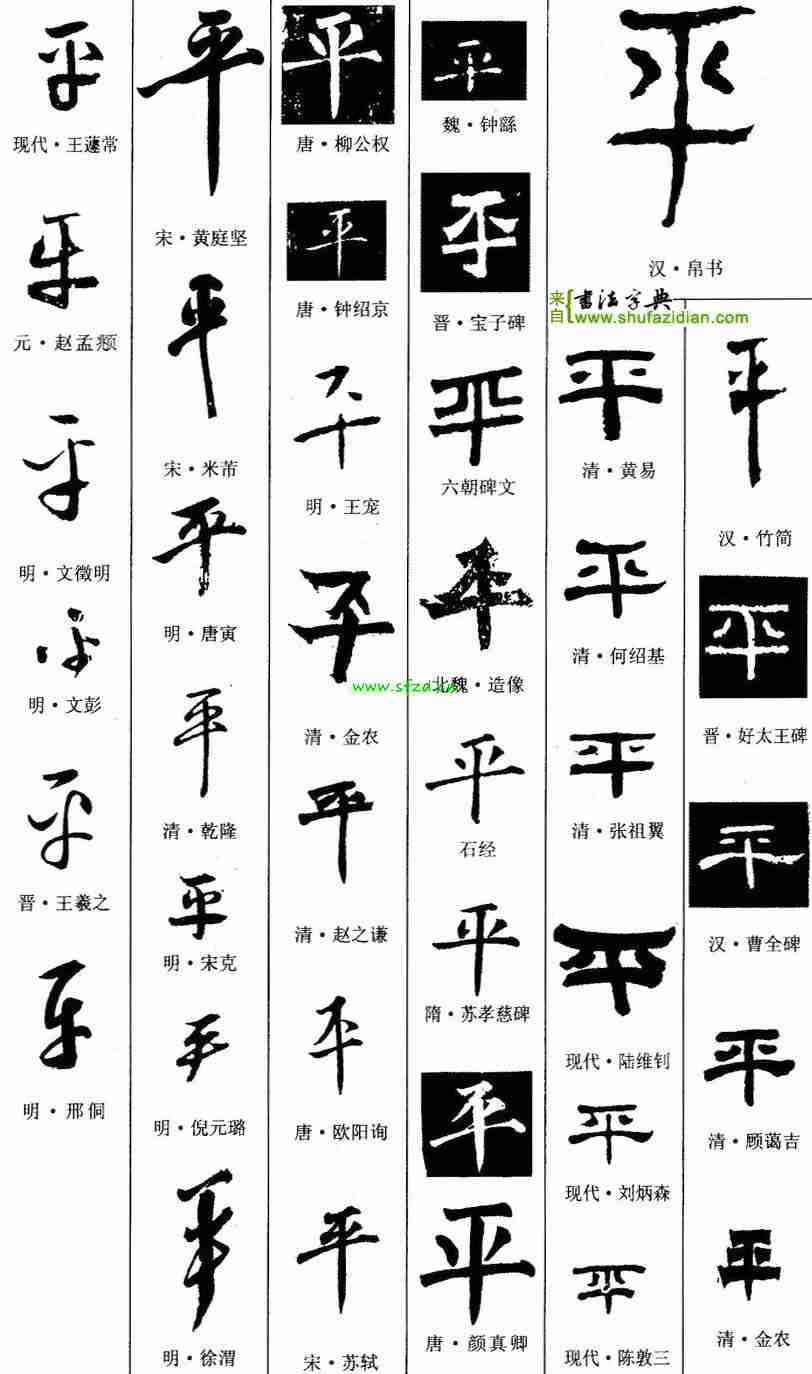 平
现代·王蘧常
平
元·赵孟頫
平
明·文徵明
平
明·文彭
平
晋·王羲之
平
明·邢侗
平
宋·黄庭坚
平
宋·米芾
平
明·唐寅
平
清·乾隆
平
明·宋克
平
明·倪元璐
平
明·徐渭
平
唐·柳公权
平
唐·钟绍京
平
明·王宠
平
清·金农
平
清·赵之谦
平
唐·欧阳询
平
宋·苏轼
平
魏·钟繇
平
晋·宝子碑
平
六朝碑文
平
北魏·造像
平
石经
平
隋·苏孝慈碑
平
平
唐·颜真卿
平
汉·帛书
来自
書法字典
www.shufazidian.com
平
清·黄易
平
清·何绍基
平
清·张祖翼
平
现代·陆维钊
平
现代·刘炳森
平
现代·陈敦三
平
汉·竹简
平
晋·好太王碑
平
汉·曹全碑
平
清·顾蔼吉
平
清·金农